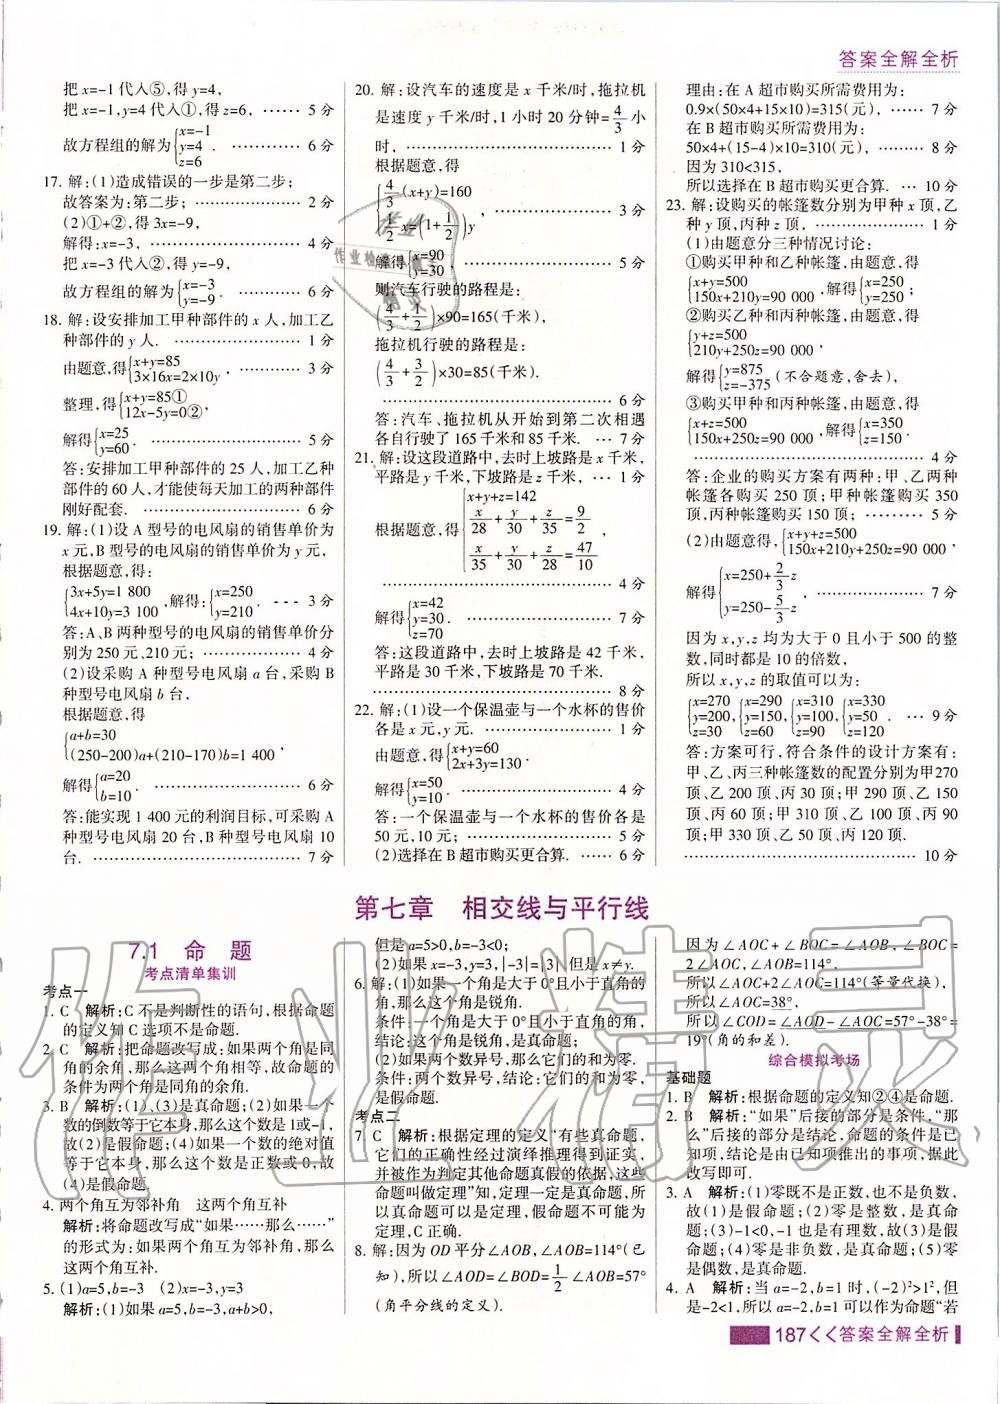 答案全解全析
把 x=-1 代入⑤,得 y=4,
把 x=-1,y=4 代入①,得 z=6, …… 5 分
故方程组的解为{x=-1 y=4 z=6. …… 6 分
17. 解:(1)造成错误的一步是第二步;
故答案为:第二步; …… 2 分
(2)①+②,得 3x=-9,
解得:x=-3, …… 4 分
把 x=-3 代入②,得 y=-9,
故方程组的解为{x=-3 y=-9. …… 6 分
18. 解:设安排加工甲种部件的 x 人,加工乙
种部件的 y 人. …… 1 分
由题意,得{x+y=85 3×16x=2×10y, …… 3 分
整理,得{x+y=85① 12x-5y=0②,
解得{x=25 y=60. …… 5 分
答:安排加工甲种部件的 25 人,加工乙种
部件的 60 人,才能使每天加工的两种部件
刚好配套. …… 6 分
19. 解:(1)设 A 型号的电风扇的销售单价为
x 元,B 型号的电风扇的销售单价为 y 元,
根据题意,得:
{3x+5y=1 800 4x+10y=3 100,解得:{x=250 y=210. --- 3 分
答:A、B 两种型号的电风扇的销售单价分
别为 250 元、210 元; …… 4 分
(2)设采购 A 种型号电风扇 a 台,采购 B
种型号电风扇 b 台,
根据题意,得
{a+b=30 (250-200)a+(210-170)b=1 400,
解得{a=20 b=10. …… 6 分
答:能实现 1 400 元的利润目标,可采购 A
种型号电风扇 20 台,B 种型号电风扇 10
台. …… 7 分
20. 解:设汽车的速度是 x 千米/时,拖拉机
是速度 y 千米/时,1 小时 20 分钟=4/3 小
时, …… 1 分
根据题意,得
{4/3(x+y)=160 1/2x=(1+1/2)y, …… 3 分
解得{x=90 y=30. …… 5 分
则汽车行驶的路程是:
(4/3+1/2)×90=165(千米),
拖拉机行驶的路程是:
(4/3+3/2)×30=85(千米).
…… 6 分
答:汽车、拖拉机从开始到第二次相遇
各自行驶了 165 千米和 85 千米. … 7 分
21. 解:设这段道路中,去时上坡路是 x 千米,
平路是 y 千米,下坡路是 z 千米, … 1 分
根据题意,得{x+y+z=142 x/28+y/30+z/35=9/2 x/35+y/30+z/28=47/10,
…… 4 分
解得{x=42 y=30. z=70 …… 7 分
答:这段道路中,去时上坡路是 42 千米,
平路是 30 千米,下坡路是 70 千米.
…… 8 分
22. 解:(1)设一个保温壶与一个水杯的售价
各是 x 元,y 元. …… 1 分
由题意,得{x+y=60 2x+3y=130.
解得{x=50 y=10. …… 4 分
答:一个保温壶与一个水杯的售价各是
50 元,10 元; …… 5 分
(2)选择在 B 超市购买更合算. …… 6 分
理由:在 A 超市购买所需费用为:
0.9×(50×4+15×10)=315(元), …… 7 分
在 B 超市购买所需费用为:
50×4+(15-4)×10=310(元), …… 8 分
因为 310<315,
所以选择在 B 超市购买更合算. … 10 分
23. 解:设购买的帐篷数分别为甲种 x 顶,乙
种 y 顶,丙种 z 顶, …… 1 分
(1)由题意分三种情况讨论:
①购买甲种和乙种帐篷,由题意,得
{x+y=500 150x+210y=90 000,解得{x=250 y=250;
②购买乙种和丙种帐篷,由题意,得
{y+z=500 210y+250z=90 000,
解得{y=875 z=-375(不合题意,舍去),
③购买甲种和丙种帐篷,由题意,得
{x+z=500 150x+250z=90 000,解得{x=350 z=150.
…… 4 分
答:企业的购买方案有两种:甲、乙两种
帐篷各购买 250 顶;甲种帐篷购买 350
顶,丙种帐篷购买 150 顶; …… 5 分
(2)由题意,得{x+y+z=500 150x+210y+250z=90 000,
解得{x=250+2/3z y=250-5/3z, …… 7 分
因为 x,y,z 均为大于 0 且小于 500 的整
数,同时都是 10 的倍数,
所以 x,y,z 的取值可以为:
{x=270 y=200, z=30 {x=290 y=150, z=60 {x=310 y=100, z=90 {x=330 y=50. z=120 … 9 分
答:方案可行,符合条件的设计方案有:
甲、乙、丙三种帐篷数的配置分别为甲270
顶、乙 200 顶、丙 30 顶;甲 290 顶、乙 150
顶、丙 60 顶;甲 310 顶、乙 100 顶、丙 90
顶;甲 330 顶、乙 50 顶、丙 120 顶.
…… 10 分
第七章 相交线与平行线
7.1 命 题
考点清单集训
考点一
1. C 解析:C 不是判断性的语句,根据命题
的定义知 C 选项不是命题.
2. C 解析:把命题改写成:如果两个角是同
角的余角,那么这两个角相等,故命题的
条件为两个角是同角的余角.
3. B 解析:(1)、(3)是真命题;(2)如果一个
数的倒数等于它本身,那么这个数是 1或-1,
故(2)是假命题;(4)如果一个数的绝对值
等于它本身,那么这个数是正数或 0,故
(4)是假命题.
4. 两个角互为邻补角 这两个角互补
解析:将命题改写成“如果……那么……”
的形式为:如果两个角互为邻补角,那么
这两个角互补.
5. (1)a=5,b=-3 (2)x=-3,y=3
解析:(1)如果 a=5,b=-3,a+b>0,
但是 a=5>0,b=-3<0;
(2)如果 x=-3,y=3,|-3|=|3| 但是 x≠y.
6. 解:(1)如果一个角是大于 0°且小于直角的
角,那么这个角是锐角.
条件:一个角是大于 0°且小于直角的角,
结论:这个角是锐角,是真命题;
(2)如果两个数异号,那么它们的和为零.
条件:两个数异号,结论:它们的和为零,
是假命题.
考点二
7. C 解析:根据定理的定义“有些真命题,
它们的正确性经过演绎推理得到证实,
并被作为判定其他命题真假的依据,这些
命题叫做定理”知,定理一定是真命题,所
以真命题可以是定理,假命题不可能为
定理,C 正确.
8. 解:因为 OD 平分∠AOB,∠AOB=114°(已
知),所以∠AOD=∠BOD=1/2∠AOB=57°
(角平分线的定义).
因为∠AOC+∠BOC=∠AOB,∠BOC=
2∠AOC,∠AOB=114°,
所以∠AOC+2∠AOC=114°(等量代换),
所以∠AOC=38°,
所以∠COD=∠AOD-∠AOC=57°-38°=
19°(角的和差).
综合模拟考场
基础题
1. B 解析:根据命题的定义知②④是命题.
2. B 解析:“如果”后接的部分是条件,“那
么”后接的部分是结论,命题的条件是已
知项,结论是由已知项推出的事项,据此
改写即可.
3. A 解析:(1)零既不是正数,也不是负数,
故(1)是假命题;(2)零是整数,是真命
题;(3)-1<0,-1 也是有理数,故(3)是假
命题;(4)零是非负数,是真命题;(5)零
是偶数,是真命题.
4. A 解析:当 a=-2,b=1 时,(-2)²>1²,但
是-2<1,所以 a=-2,b=1 可以作为命题“若
187<<答案全解全析
作业精灵